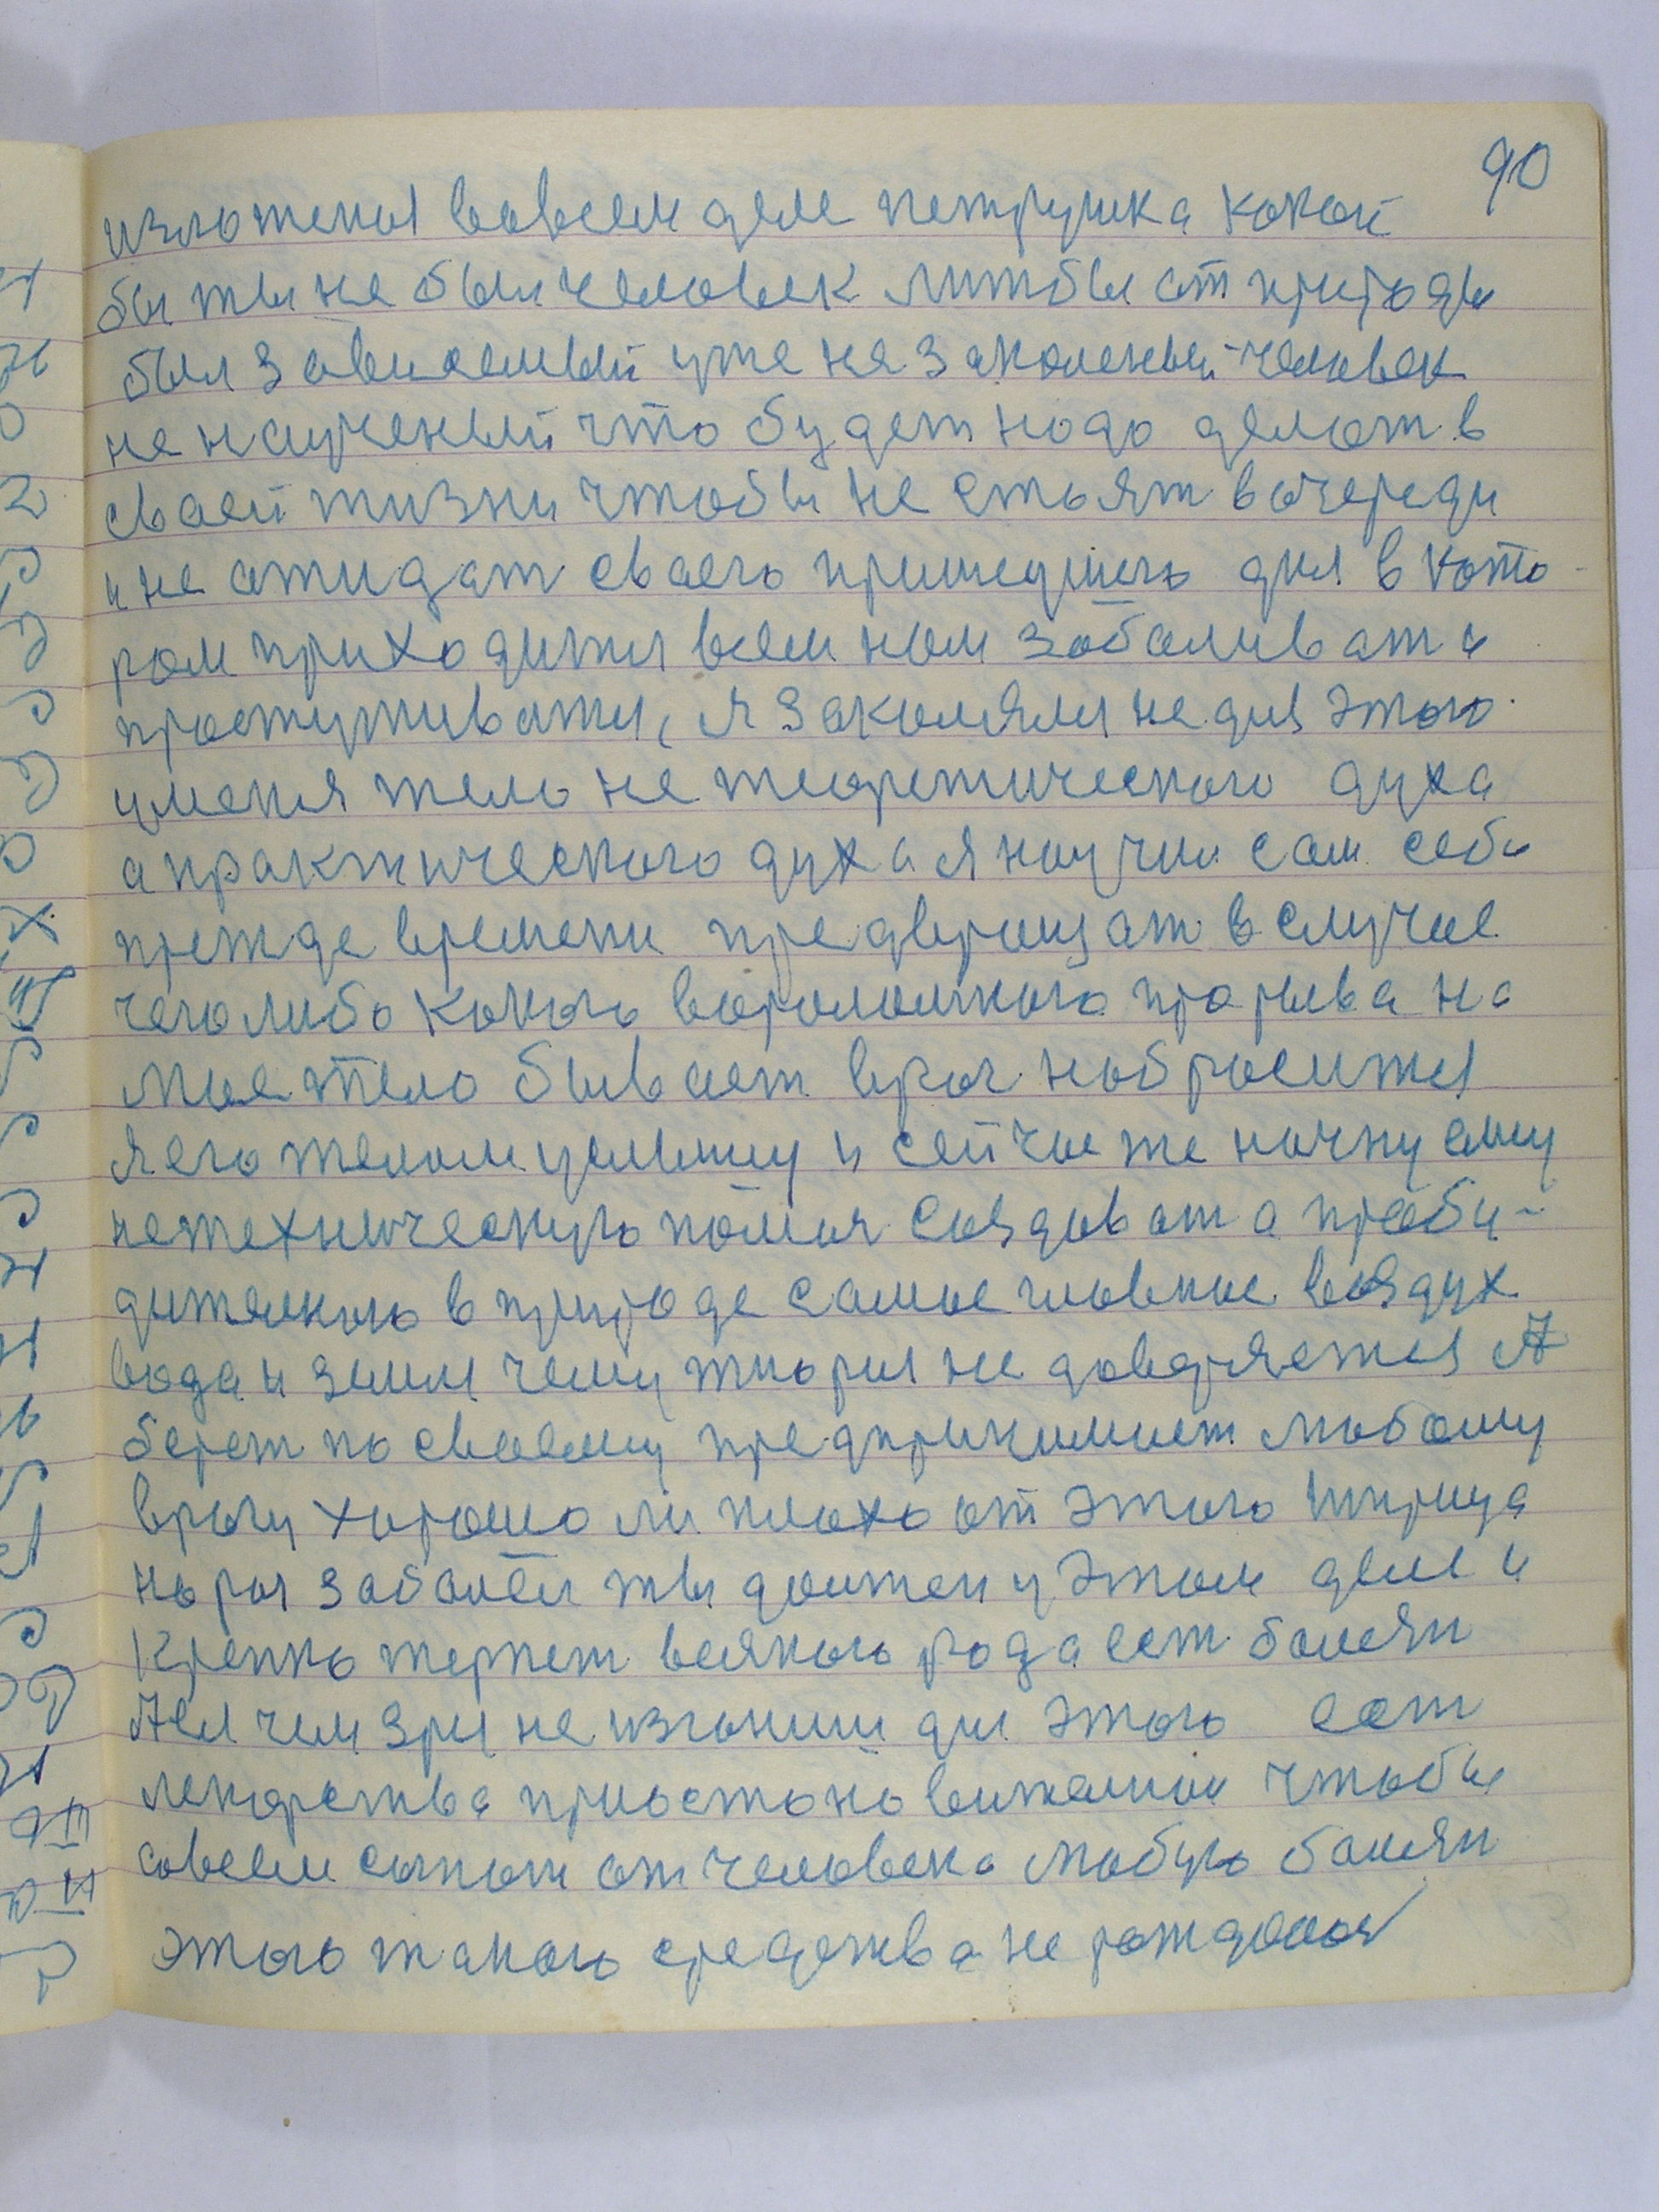 90
изложеныя вовсем деле петрушка какой
бы ты не был человек лижбы от природы
был зависемый уже не закаленый человек
не наученый что будет надо делат в
сваей жизни чтобы не стоят вочереди
и не ажидат сваего пришедшего дня в кото-
ром приходится всем нам забаливат и
простуживатся, я закалялся не для этого
уменя тело не теоретического духа
а практического духа я научил сам себя
прежде времени предврощат в случае
чеголибо какого вороломного прорыва на
мое тело бывает враг набросится
я его телом услышу и сейчас же начну ему
нетехническую помоч создават а пробу-
дительного в природе самое главное воздух
вода и земля чему теория не доверяется А
берет по своему предпринимает любому
врагу хорошо ли плохо от этого шприца
но раз заболел ты должен у этом деле и
крепко терпет всякого рода ест болезн
Ее чем зря не изгониш для этого ест
лекарства приостоновительное чтобы
совсем согнат от человека любую болезн
этого такого средства не рождалося